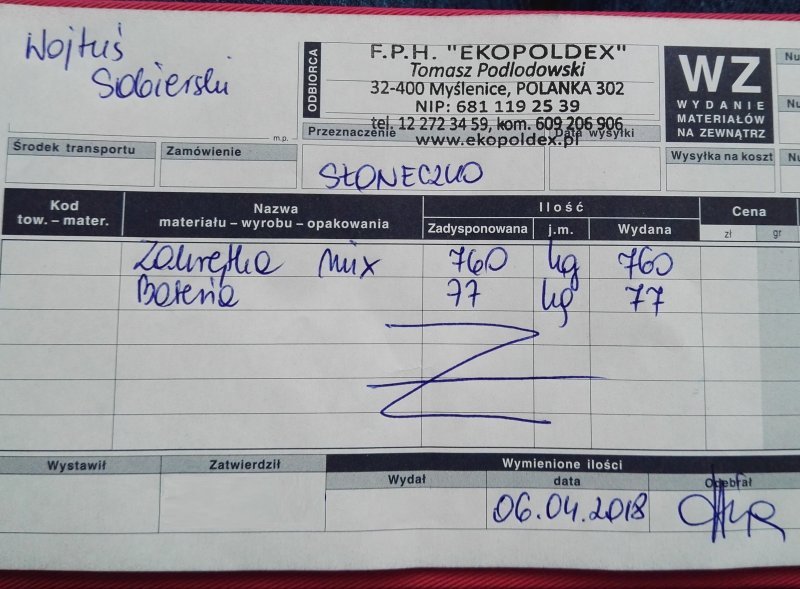 Wojtuś
Sobierski
m.p.
ODBIORCA
F.P.H. "EKOPOLDEX"
Tomasz Podlodowski
32-400 Myślenice, POLANKA 302
NIP: 681 119 25 39
tel. 12 272 34 59, kom. 609 206 906
www.ekopoldex.pl
WZ
WYDANIE
MATERIAŁÓW
NA ZEWNĄTRZ
Nu
Nu
Środek transportu
Zamówienie
Przeznaczenie
Data wysyłki
Wysyłka na koszt
Nu
SŁONECZKO
Kod
tow. – mater.
Nazwa
materiału – wyrobu – opakowania
Ilość
Zadysponowana
j.m.
Wydana
Cena
zł
gr
Zakrętka mix 760 kg 760
Bateria 77 kg 77
Wystawił
Zatwierdził
Wymienione ilości
Wydał
data
Odebrał
06.04.2018